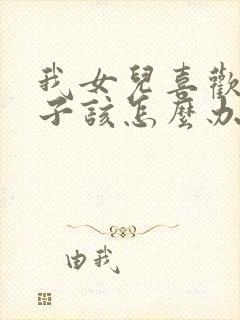 我女兒喜歡
子該怎麼办
由我